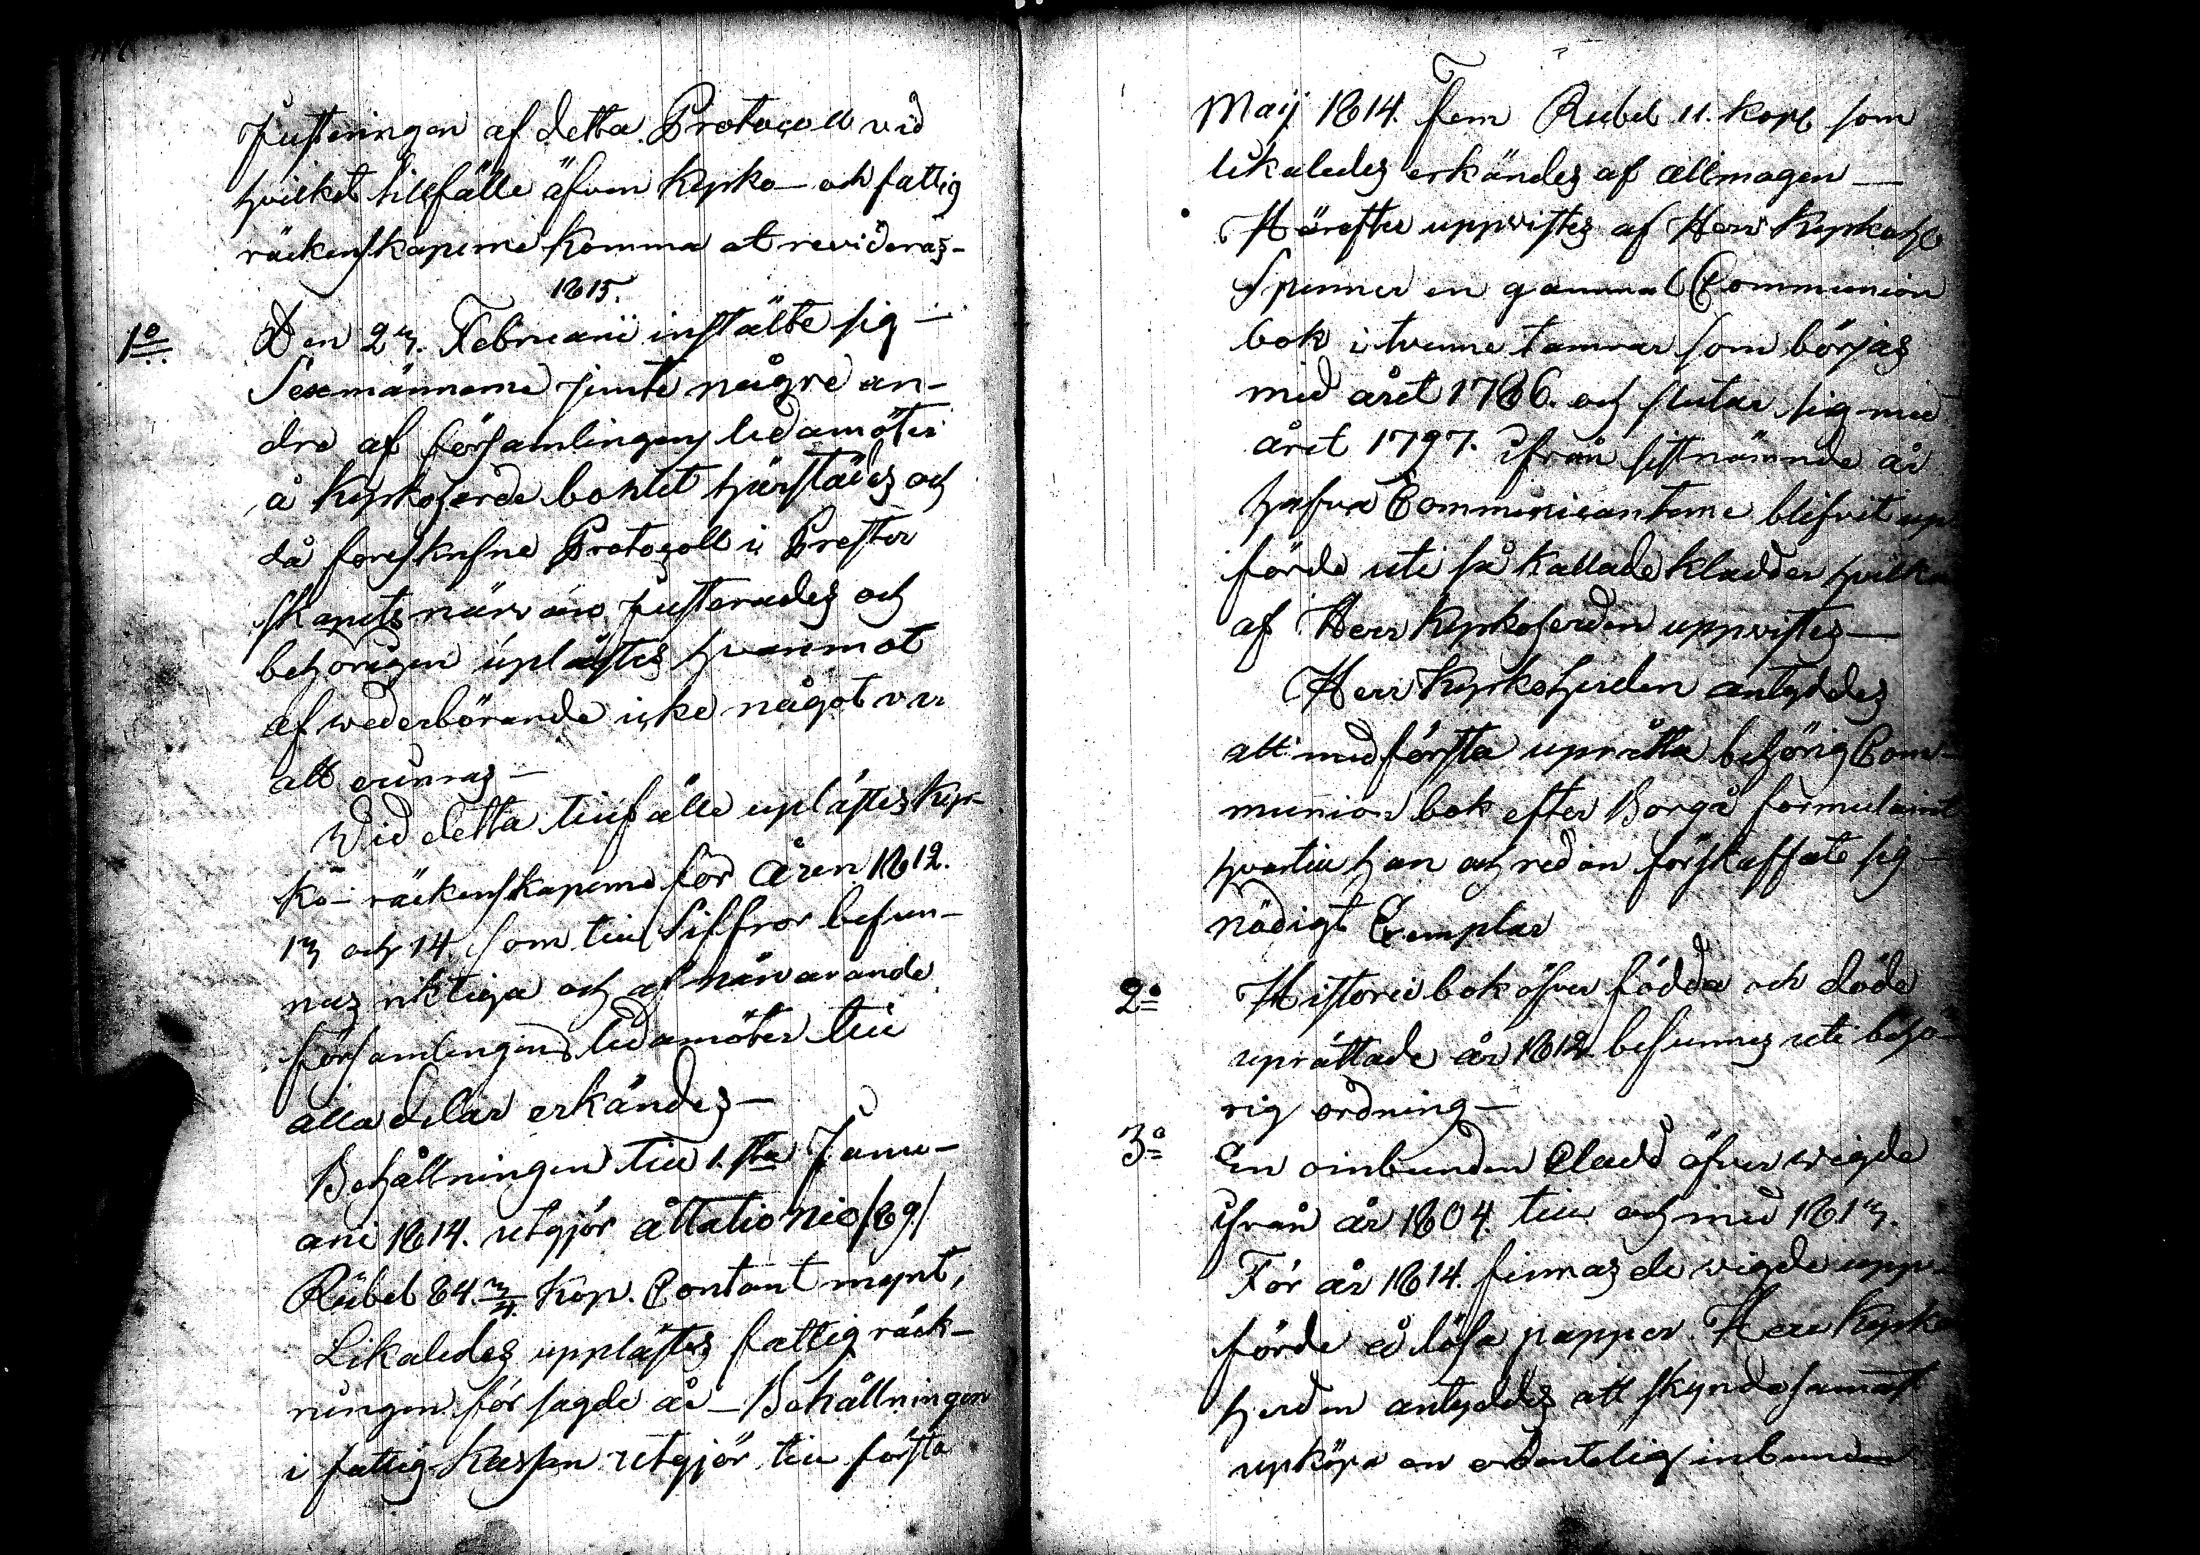 Justeringen af detta Protocoll vid
hvilket tillfälle äfven Kyrko- och fattig
räckenskaperne komma at revideras-
1815.
1º Den 23. Februarii instälte sig -
Sexmännerne jemte någre an-
dra af församlingens ledamöter
å Kyrkoherde bohlet härstädes och
då föreskrifne Protocoll i Prester
skapets närvaro justerades och
behörigen uplästes hvaremot
af wederbörande icke något var
att erinras-
Vid detta tillfälle uplästes Kyr-
ko- räckenskaperne för Åren 1812.
13 och 14. som till Siffror befun-
nus riktiga och af närvarande
församlingens ledamöter till
alla delar erkändes-
Behållningen till 1. sta Janu-
arii 1814. utgjör åttatio Nio /89/
Rubel 84. 3/4. Kop. Contant mynt,
Likaledes upplästes fattig räck-
ningen för sagde år - Behållningen
i fattig Kassan utgjör till första
Maij 1814. Fem Rubel 11. Kop. som
likaledes erkändes af allmogen -
Härefter uppvistes af Herr Kyrkoh
en gammal Communion
bok i tvenne som börjas
med året 1786. och slutar sig med
året 1797. ifrån sistnämnde år
hafva Communicanterne blifvit up
förde uti så kallade kladder hvilka
af Herr Kyrkoherden uppvistes -
Herr Kyrkoherden antyddes
att med första uprätta behörig Com-
munion bok efter Borgå formulairet
hvartill han och redan förskaffate sig -
nödigt Exemplar
2º Historie bok öfver födda och döde
uprättade år 1812 befunnes uti behö-
rig ordning -
3º En oinbunden Cladd öfver vigde
ifrån år 1804. till och med 1813.
För år 1814. finnas de vigde upp-
förde å lösa papper. Herr Kyrko
herden antyddes att skyndesamast
upköpa en ordentelig inbunden